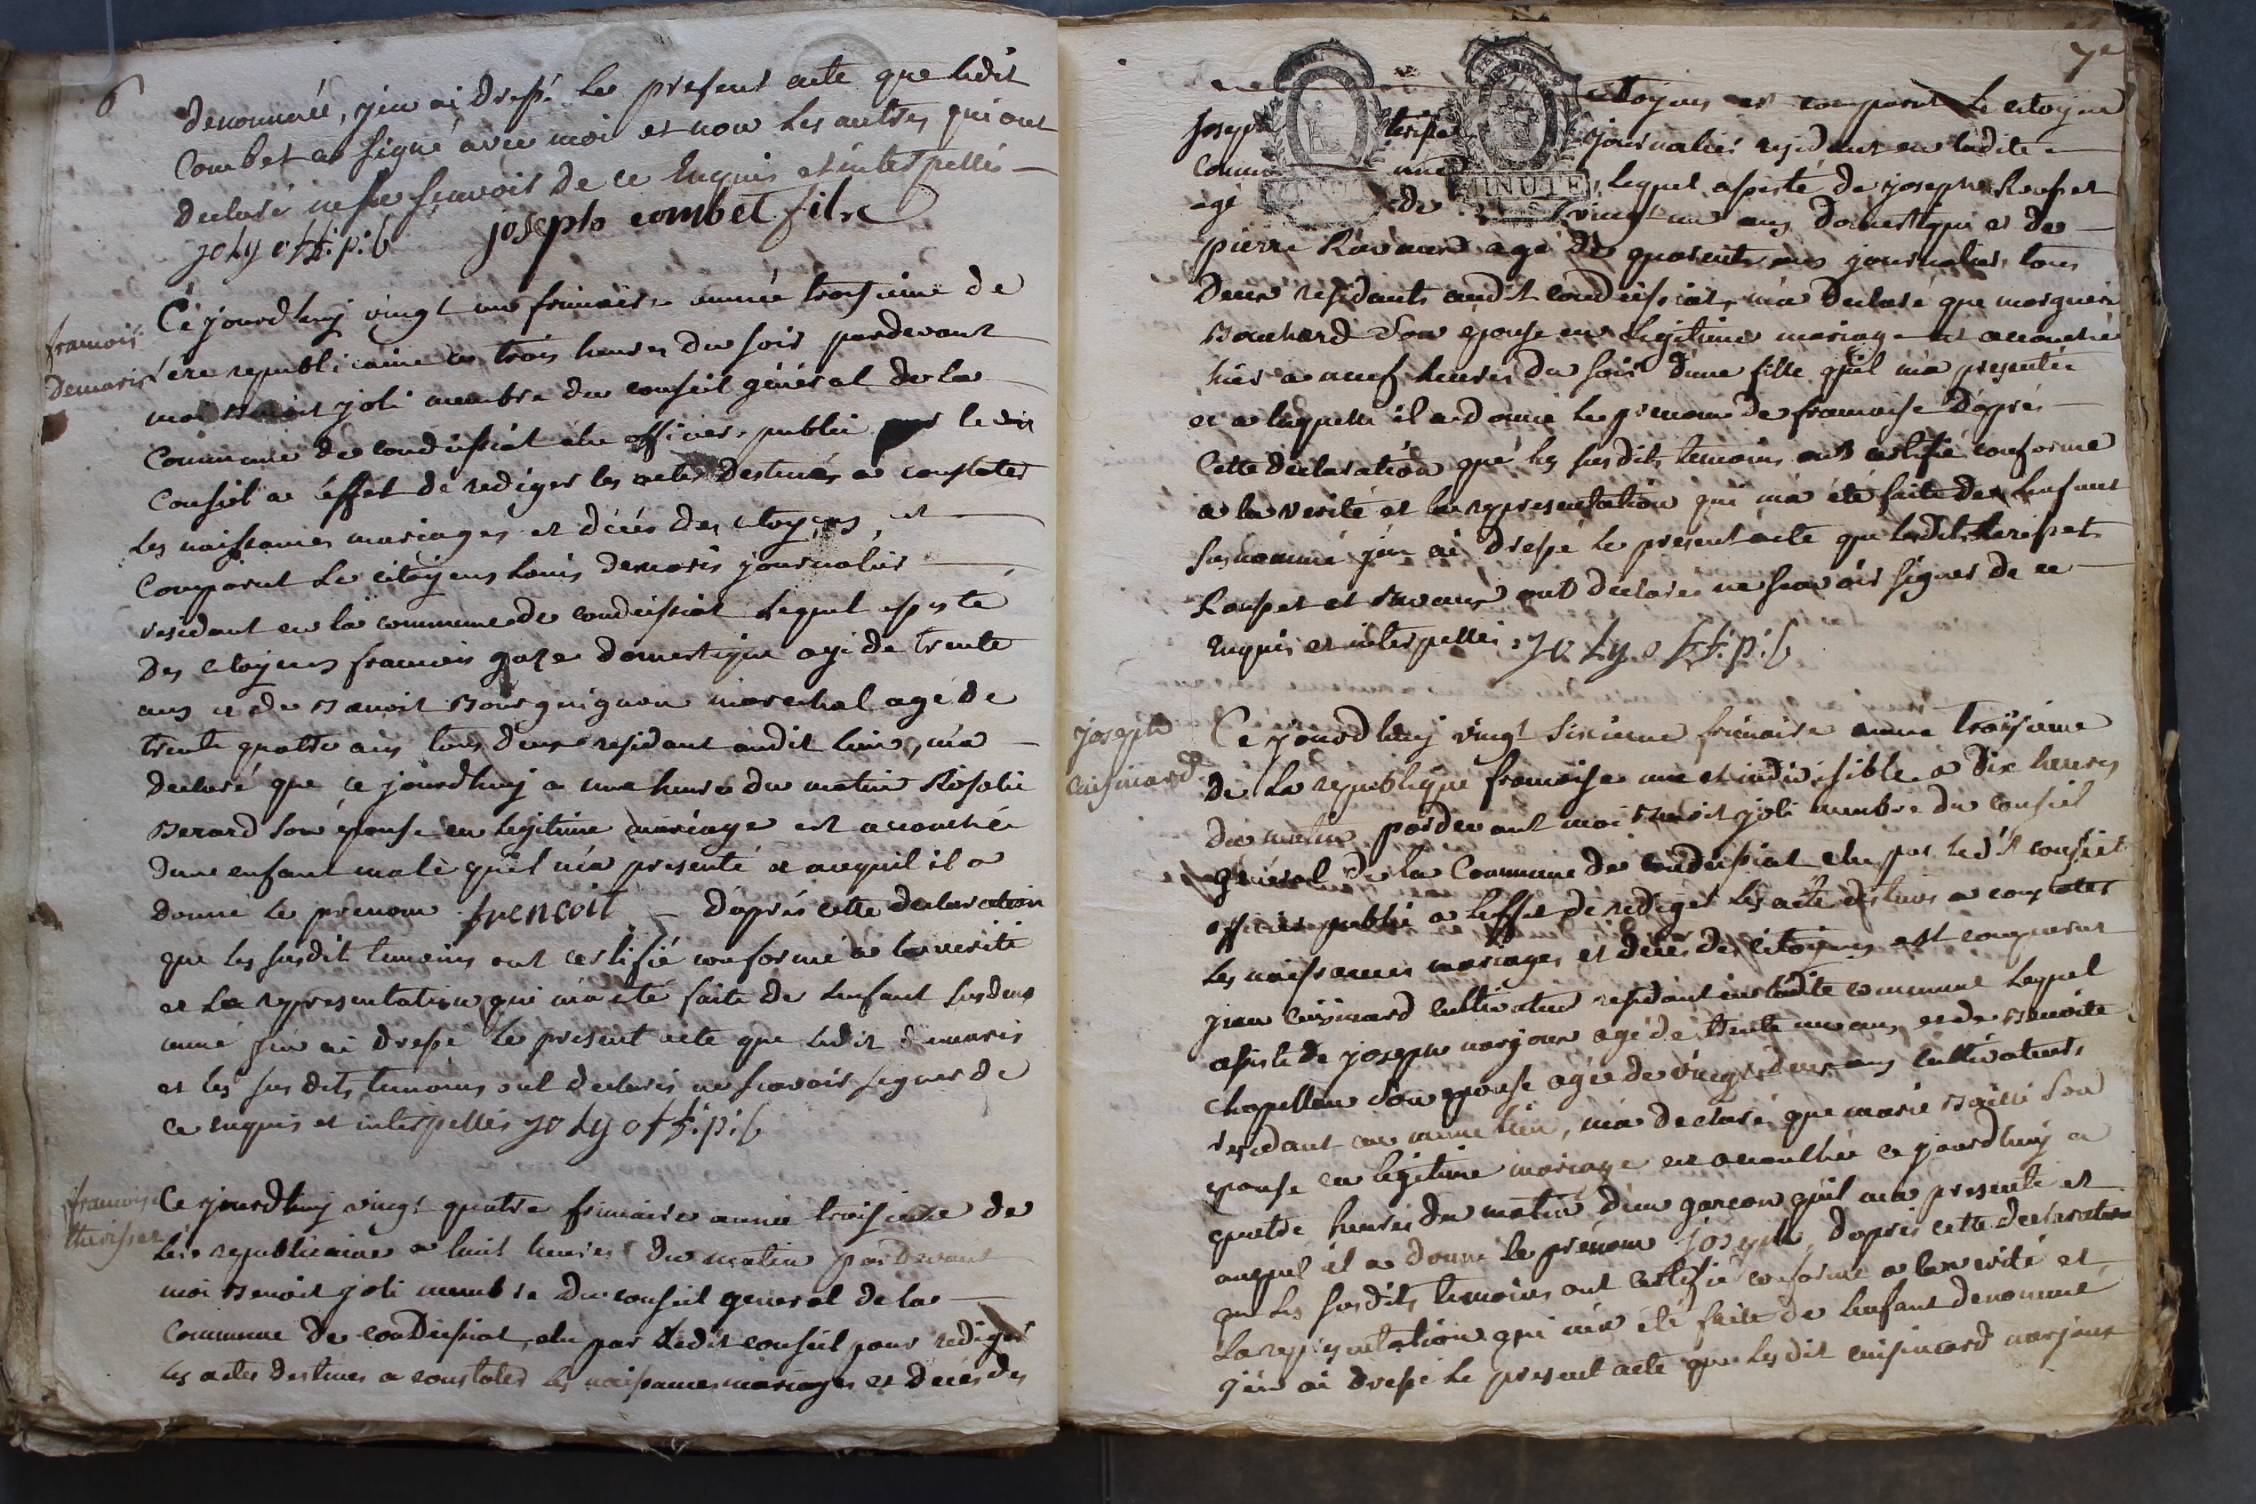 6
denommée, j'en ai dressé le present acte que ledit
Combet a signé avec moi et non les autres qui ont
declaré ne le sçavoir de ce enquis et interpellés
joly off. p.
joseph combet fils
francois
demaris
Ce jourdhuy vingt un frimaire année troisieme de
l'ere republicaine a trois heures du soir pardevant
moi Benoit joli membre du conseil général de la
Commune de condeissiat elu officier public par ledit
Conseil a l'effet de rediger les actes destinés a constater
les naissances mariages et décès des citoyens, et
comparut le citoyens Louis demaris journalier
residant en la commune de condeissiat lequel assisté
des citoyens francois goze domestique agé de trente
ans et de Benoit Bourguignon marechal agé de
trente quattre ans tous deux residant audit lieu, m'a
declaré que ce jourdhuy a une heure du matin Rosalie
Berard son épouse en legitime mariage est accouchée
d'une enfant male qu'il m'a presenté et auquil il a
donné le prenom francoit d'après cette declaration
que les susdit temoins ont certifié conforme a la verité
et la representation qui m'a eté faite de lenfant susdeno
mmé j'en ai dressé le present acte que ledit demaris
et les susdits temoins ont declarés ne scavoir signer de
ce enquis et interpellés joly off. p.
francoise
therisset
Ce jourdhuy vingt quatre frimaire année troisieme de
lere republicaine a huit heures du matin pardevant
moi Benoit joli membre du conseil general de la
commune de condeissiat, elu par ledit conseil pour rediger
les actes destines a constater les naissances mariages et décès des
7e
citoyens est comparut le citoyen
joseph journalier residant en ladite
MINUTE MINUTE
lequel assisté de joseph Rousset
agé de vingt un ans domestique et de
pierre Ravaud agé de quarente ans journalier tous
deux residants audit condeissiat, m'a declaré que
Bouchard son épouse en legitime mariage est accouchée
hier a neuf heures du soir d'une fille qu'il m'a presentée
et a laquelle il a donné le prenom de francoise d'après
Cette declaration que les susdits temoins ont certifié conforme
a la verité et la representation qui m'a été faite de lenfant
susnommé j'en ai dressé le present acte que lesdits
Rousset et Ravaud ont declarés ne scavoir signer de ce
enquis et interpellés joly off. p.
joseph
cuisinard
Ce jourdhuy vingt sixieme frimaire année troisieme
de la republique francaise une et indivisible a dix heures
du matin pardevant moi Benoit joli membre du conseil
général de la Commune de condeissiat elu par ledit conseil
officier public a leffet de rediger les acte destines a constater
les naissances mariages et décès des citoyens est comparut
jean cuisinard cultivateur residant en ladite commune lequel
assisté de joseph agé de trente un ans, et de Benoite
chapellon son epouse agée de vingt deux ans cultivateurs
residant au meme lieu, m'a declaré que marie son
epouse en legitime mariage est accouchée ce jourdhuy a
quatre heures du matin d'un garcon qu'il m'a presenté et
auquel il a donné le prénom joseph, d'après cette declaration
que les susdits temoins ont certifié conforme a la verité et
la representation qui m'a été faite de lenfant denommé
j'en ai dressé le present acte que lesdit cuisinard